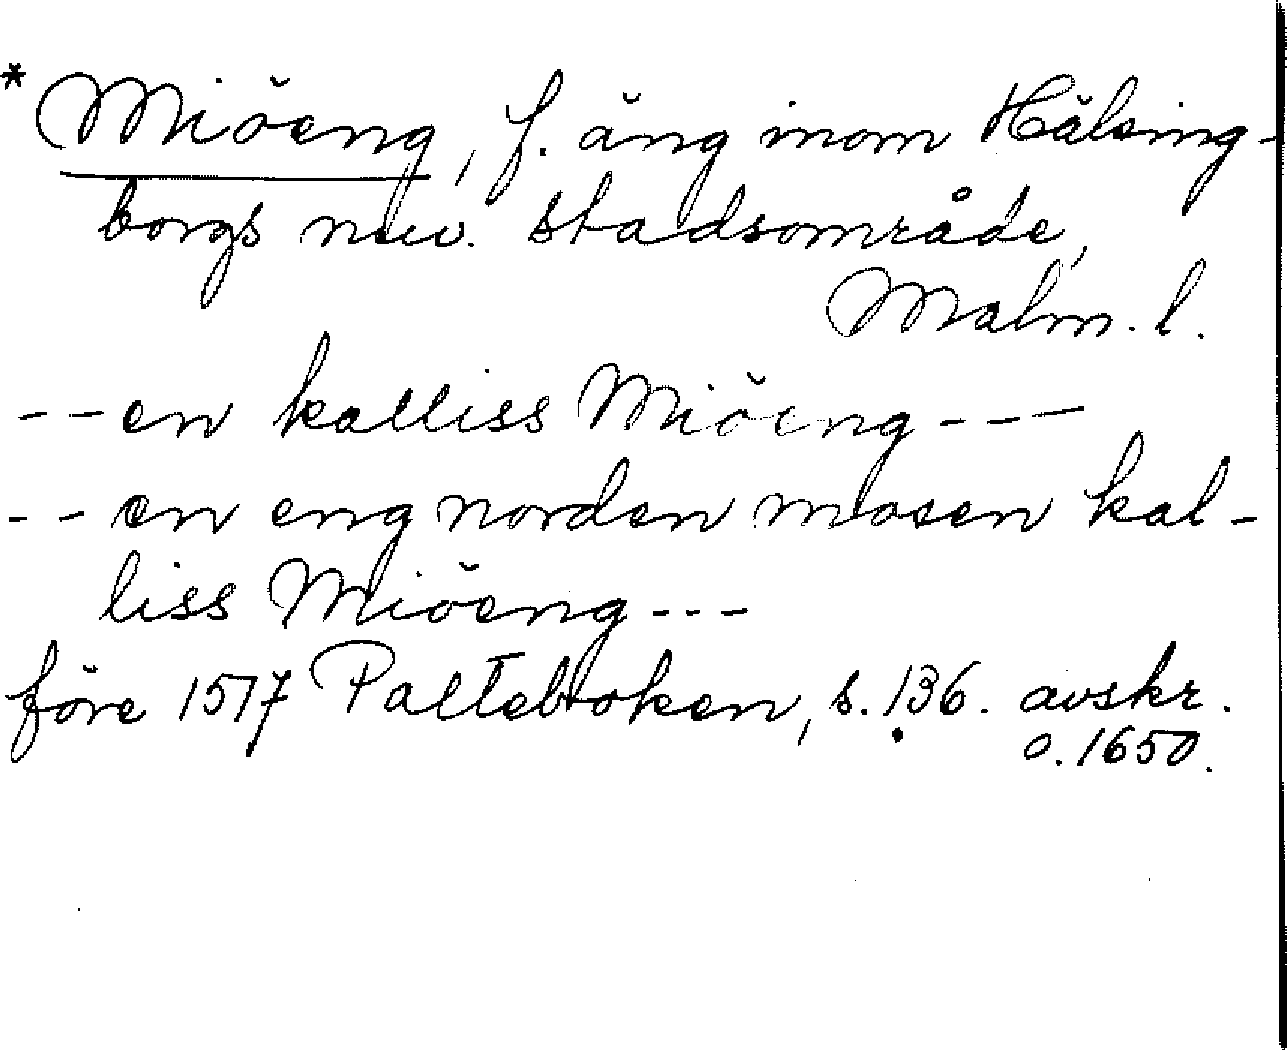 * Miöeng, f. äng inom Hälsing-
borgs nuv. stadsområde,
Malm. l.
--en kalliss Miöeng---
--en eng norden mosen kal-
liss Miöeng---
före 1517 Palteboken, s. 136. avskr.
o. 1650.